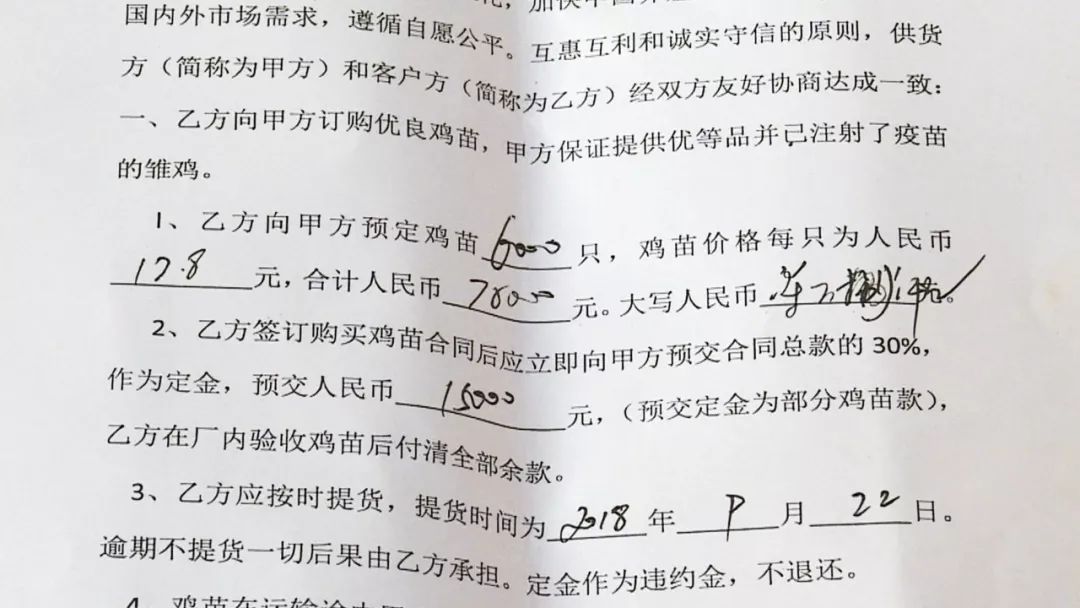 国内外市场需求，遵循自愿公平。互惠互利和诚实守信的原则，供货
方（简称为甲方）和客户方（简称为乙方）经双方友好协商达成一致：
一、乙方向甲方订购优良鸡苗，甲方保证提供优等品并已注射了疫苗
的雏鸡。
1、乙方向甲方预定鸡苗 6000 只，鸡苗价格每只为人民币
元，合计人民币 元。大写人民币 。
2、乙方签订购买鸡苗合同后应立即向甲方预交合同总款的 30%，
作为定金，预交人民币 15000 元，（预交定金为部分鸡苗款），
乙方在厂内验收鸡苗后付清全部余款。
3、乙方应按时提货，提货时间为 2018 年 月 22 日。
逾期不提货一切后果由乙方承担。定金作为违约金，不退还。
4、鸡苗在运输途中